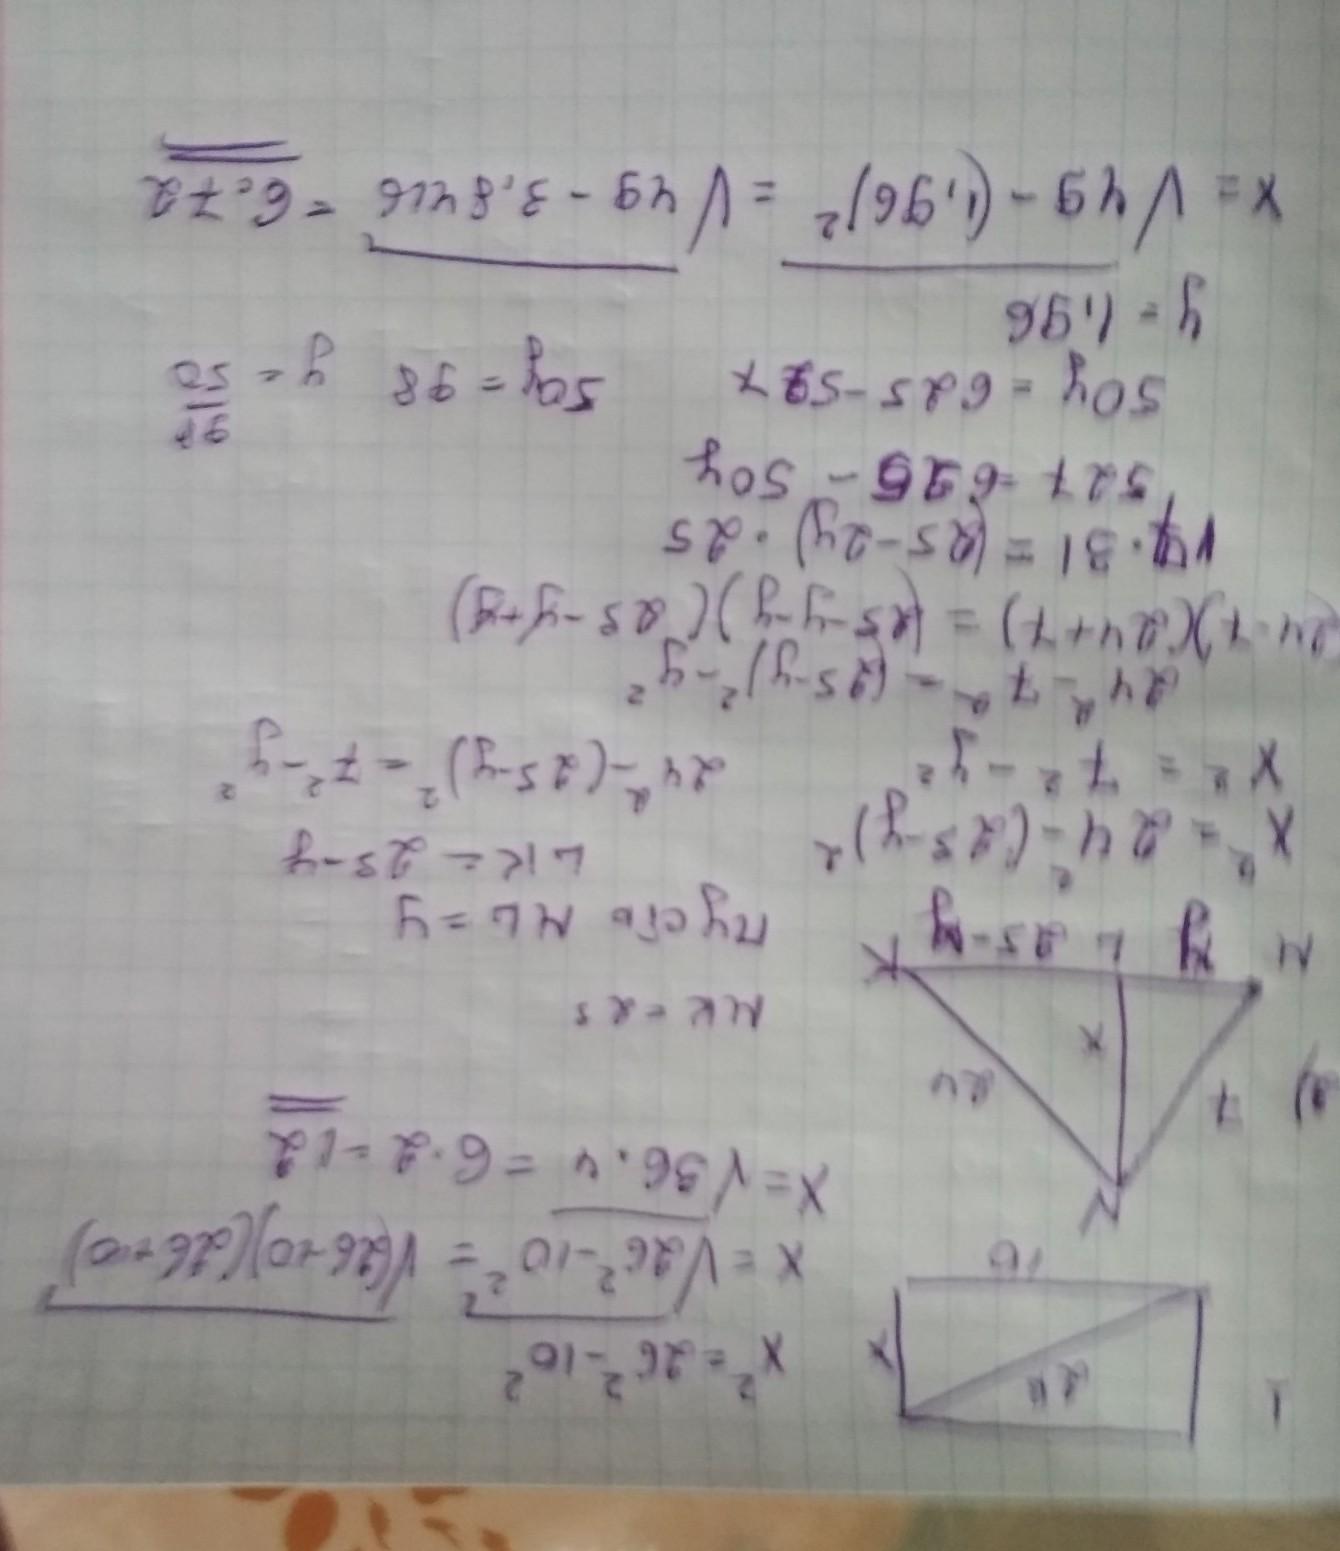 1
26
x
10
x² = 26² - 10²
x = √26² - 10² = √(26+10)(26+10)
x = √36 · 4 = 6 · 2 = 12
2)
N
7
24
x
M y L 25-y K
MK = 25
Пусть ML = y
LK = 25-y
x² = 24² - (25-y)²
x² = 7² - y²
24² - (25-y)² = 7² - y²
24² - 7² = (25-y)² - y²
24-7)(24+7) = (25-y-y)(25-y+y)
17·31 = (25-2y)·25
527 = 625 - 50y
50y = 625 - 527
50y = 98
y = 98/50
y = 1,96
x = √49 - (1,96)² = √49 - 3,8416 = 6.72